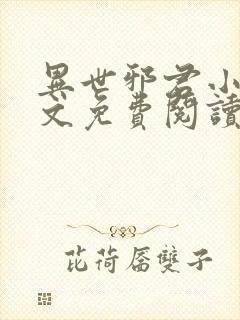 異世邪君小
文免費閱讀
芘荷唇雙子